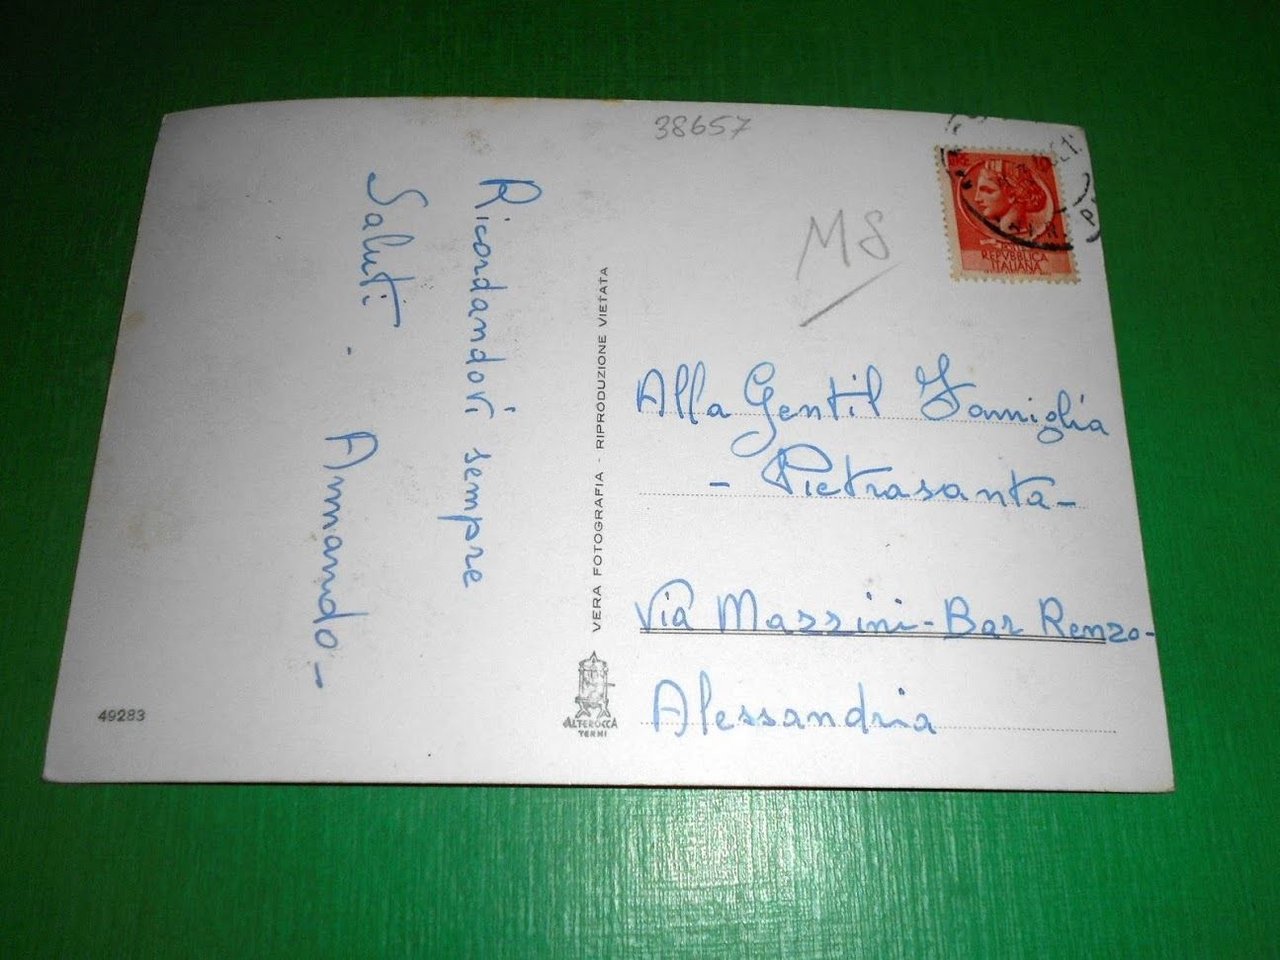 38657
MS
LIRE 10
POSTE
REPVBBLICA
ITALIANA
Ricordandovi sempre
Saluti.
Armando-
VERA FOTOGRAFIA - RIPRODUZIONE VIETATA
Alla Gentil Famiglia
- Pietrasanta-
Via Mazzini-Bar Renzo-
Alessandria
ALTEROCCA
TERNI
49283